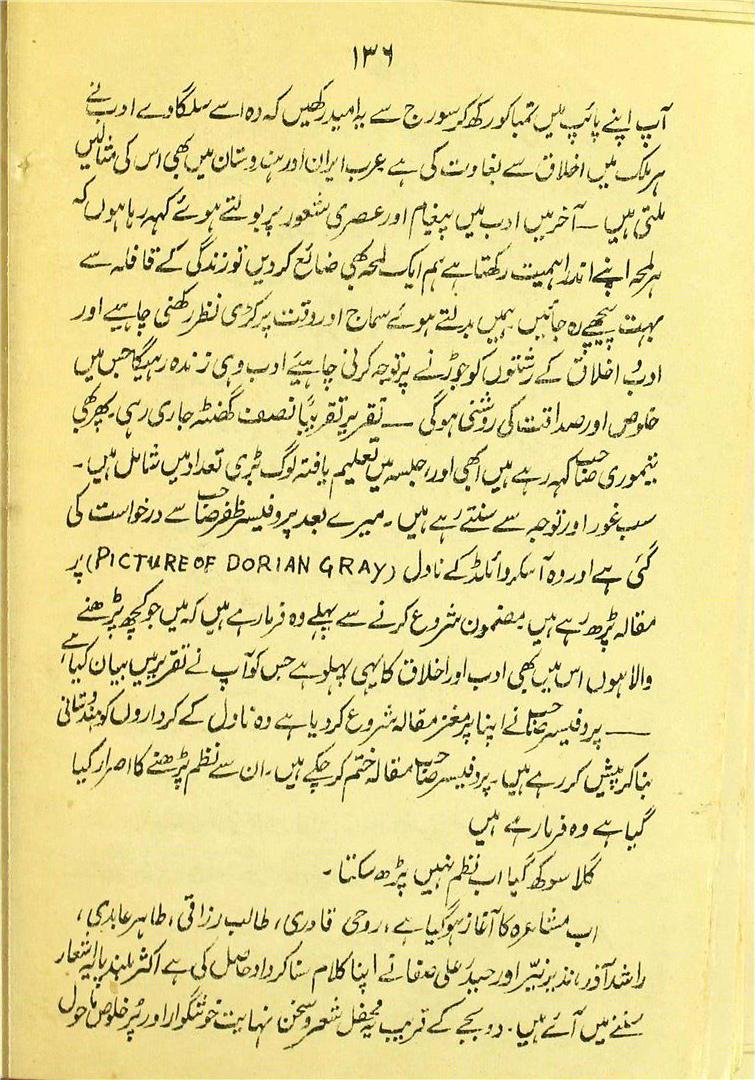 ۱۳۶
آپ اپنے پائپ میں تمباکو رکھ کر سورج سے یہ امید رکھیں کہ وہ اسے سلگاوے ادب نے
ہر ملک میں اخلاق سے بغاوت کی ہے عرب ایران اور ہندوستان میں بھی اس کی مثالیں
ملتی ہیں ۔ آخر میں ادب میں پیغام اور عصری شعور پر بولتے ہوئے کہہ رہا ہوں کہ
ہر لمحہ اپنے اندر اہمیت رکھتا ہے ہم ایک لمحہ بھی ضائع کر دیں تو زندگی کے قافلہ سے
بہت پیچھے رہ جائیں ہمیں بدلتے ہوئے سماج اور وقت پر کڑی نظر رکھنی چاہیے اور
ادب و اخلاق کے رشتوں کو جوڑنے پر توجہ کرنی چاہیے ادب وہی زندہ رہیگا جس میں
خلوص اور صداقت کی روشنی ہوگی ــــ تقریر تقریباً نصف گھنٹہ جاری رہی۔ پھر بھی
تیموری صاحب کہہ رہے ہیں ابھی اور، جلسہ میں تعلیم یافتہ لوگ بڑی تعداد میں شامل ہیں۔
سب غور اور توجہ سے سنتے رہے ہیں۔ میرے بعد پروفیسر ظفر صاحب سے درخواست کی
گئی ہے اور وہ آسکر وائلڈ کے ناول (PICTURE OF DORIAN GRAY) پر
مقالہ پڑھ رہے ہیں مضمون شروع کرنے سے پہلے وہ فرما رہے ہیں کہ میں جو کچھ پڑھنے
والا ہوں اس میں بھی ادب اور اخلاق کا یہی پہلو ہے جس کو آپ نے تقریر میں بیان کیا ہے
ــــ پروفیسر صاحب نے اپنا پر مغز مقالہ شروع کر دیا ہے وہ ناول کے کرداروں کو ہندوستانی
بنا کر پیش کر رہے ہیں۔ پروفیسر صاحب مقالہ ختم کر چکے ہیں۔ ان سے نظم پڑھنے کا اصرار کیا
گیا ہے وہ فرما رہے ہیں
گلا سوکھ گیا اب نظم نہیں پڑھ سکتا ۔
اب مشاعرہ کا آغاز ہو گیا ہے، روحی قادری، طالب رزاقی، طاہر عابدی،
راشد آذر، نذیر نیّر اور حیدر علی صفا نے اپنا کلام سنا کر داد حاصل کی ہے اکثر بلند پایہ اشعار
سننے میں آئے ہیں۔ دو بجے کے قریب یہ محفل شعر و سخن نہایت خوشگوار اور پُر خلوص ماحول